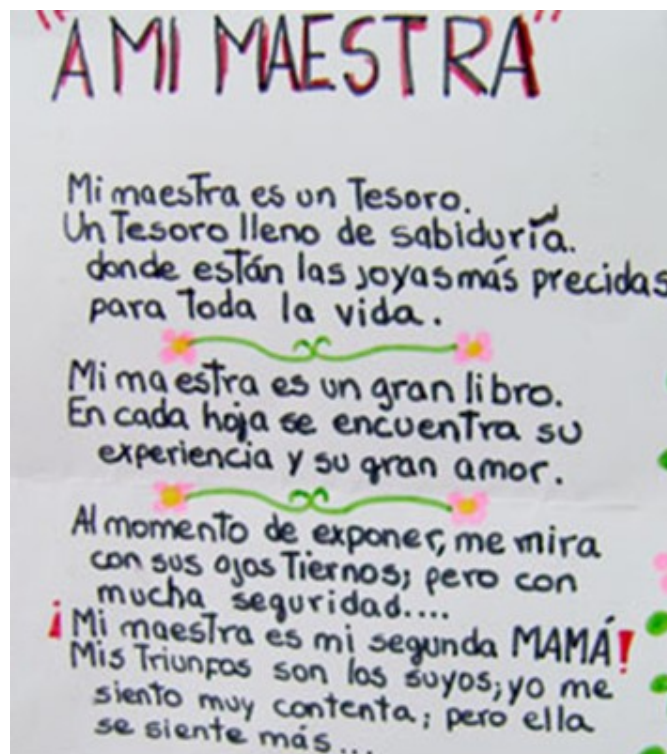 "A MI MAESTRA"
Mi maestra es un Tesoro.
Un Tesoro lleno de sabiduría.
donde están las joyas más precidas
para Toda la vida.
Mi maestra es un gran libro.
En cada hoja se encuentra su
experiencia y su gran amor.
Al momento de exponer, me mira
con sus ojos Tiernos; pero con
mucha seguridad....
¡Mi maestra es mi segunda MAMÁ!
Mis Triunfos son los suyos; yo me
siento muy contenta; pero ella
se siente más...